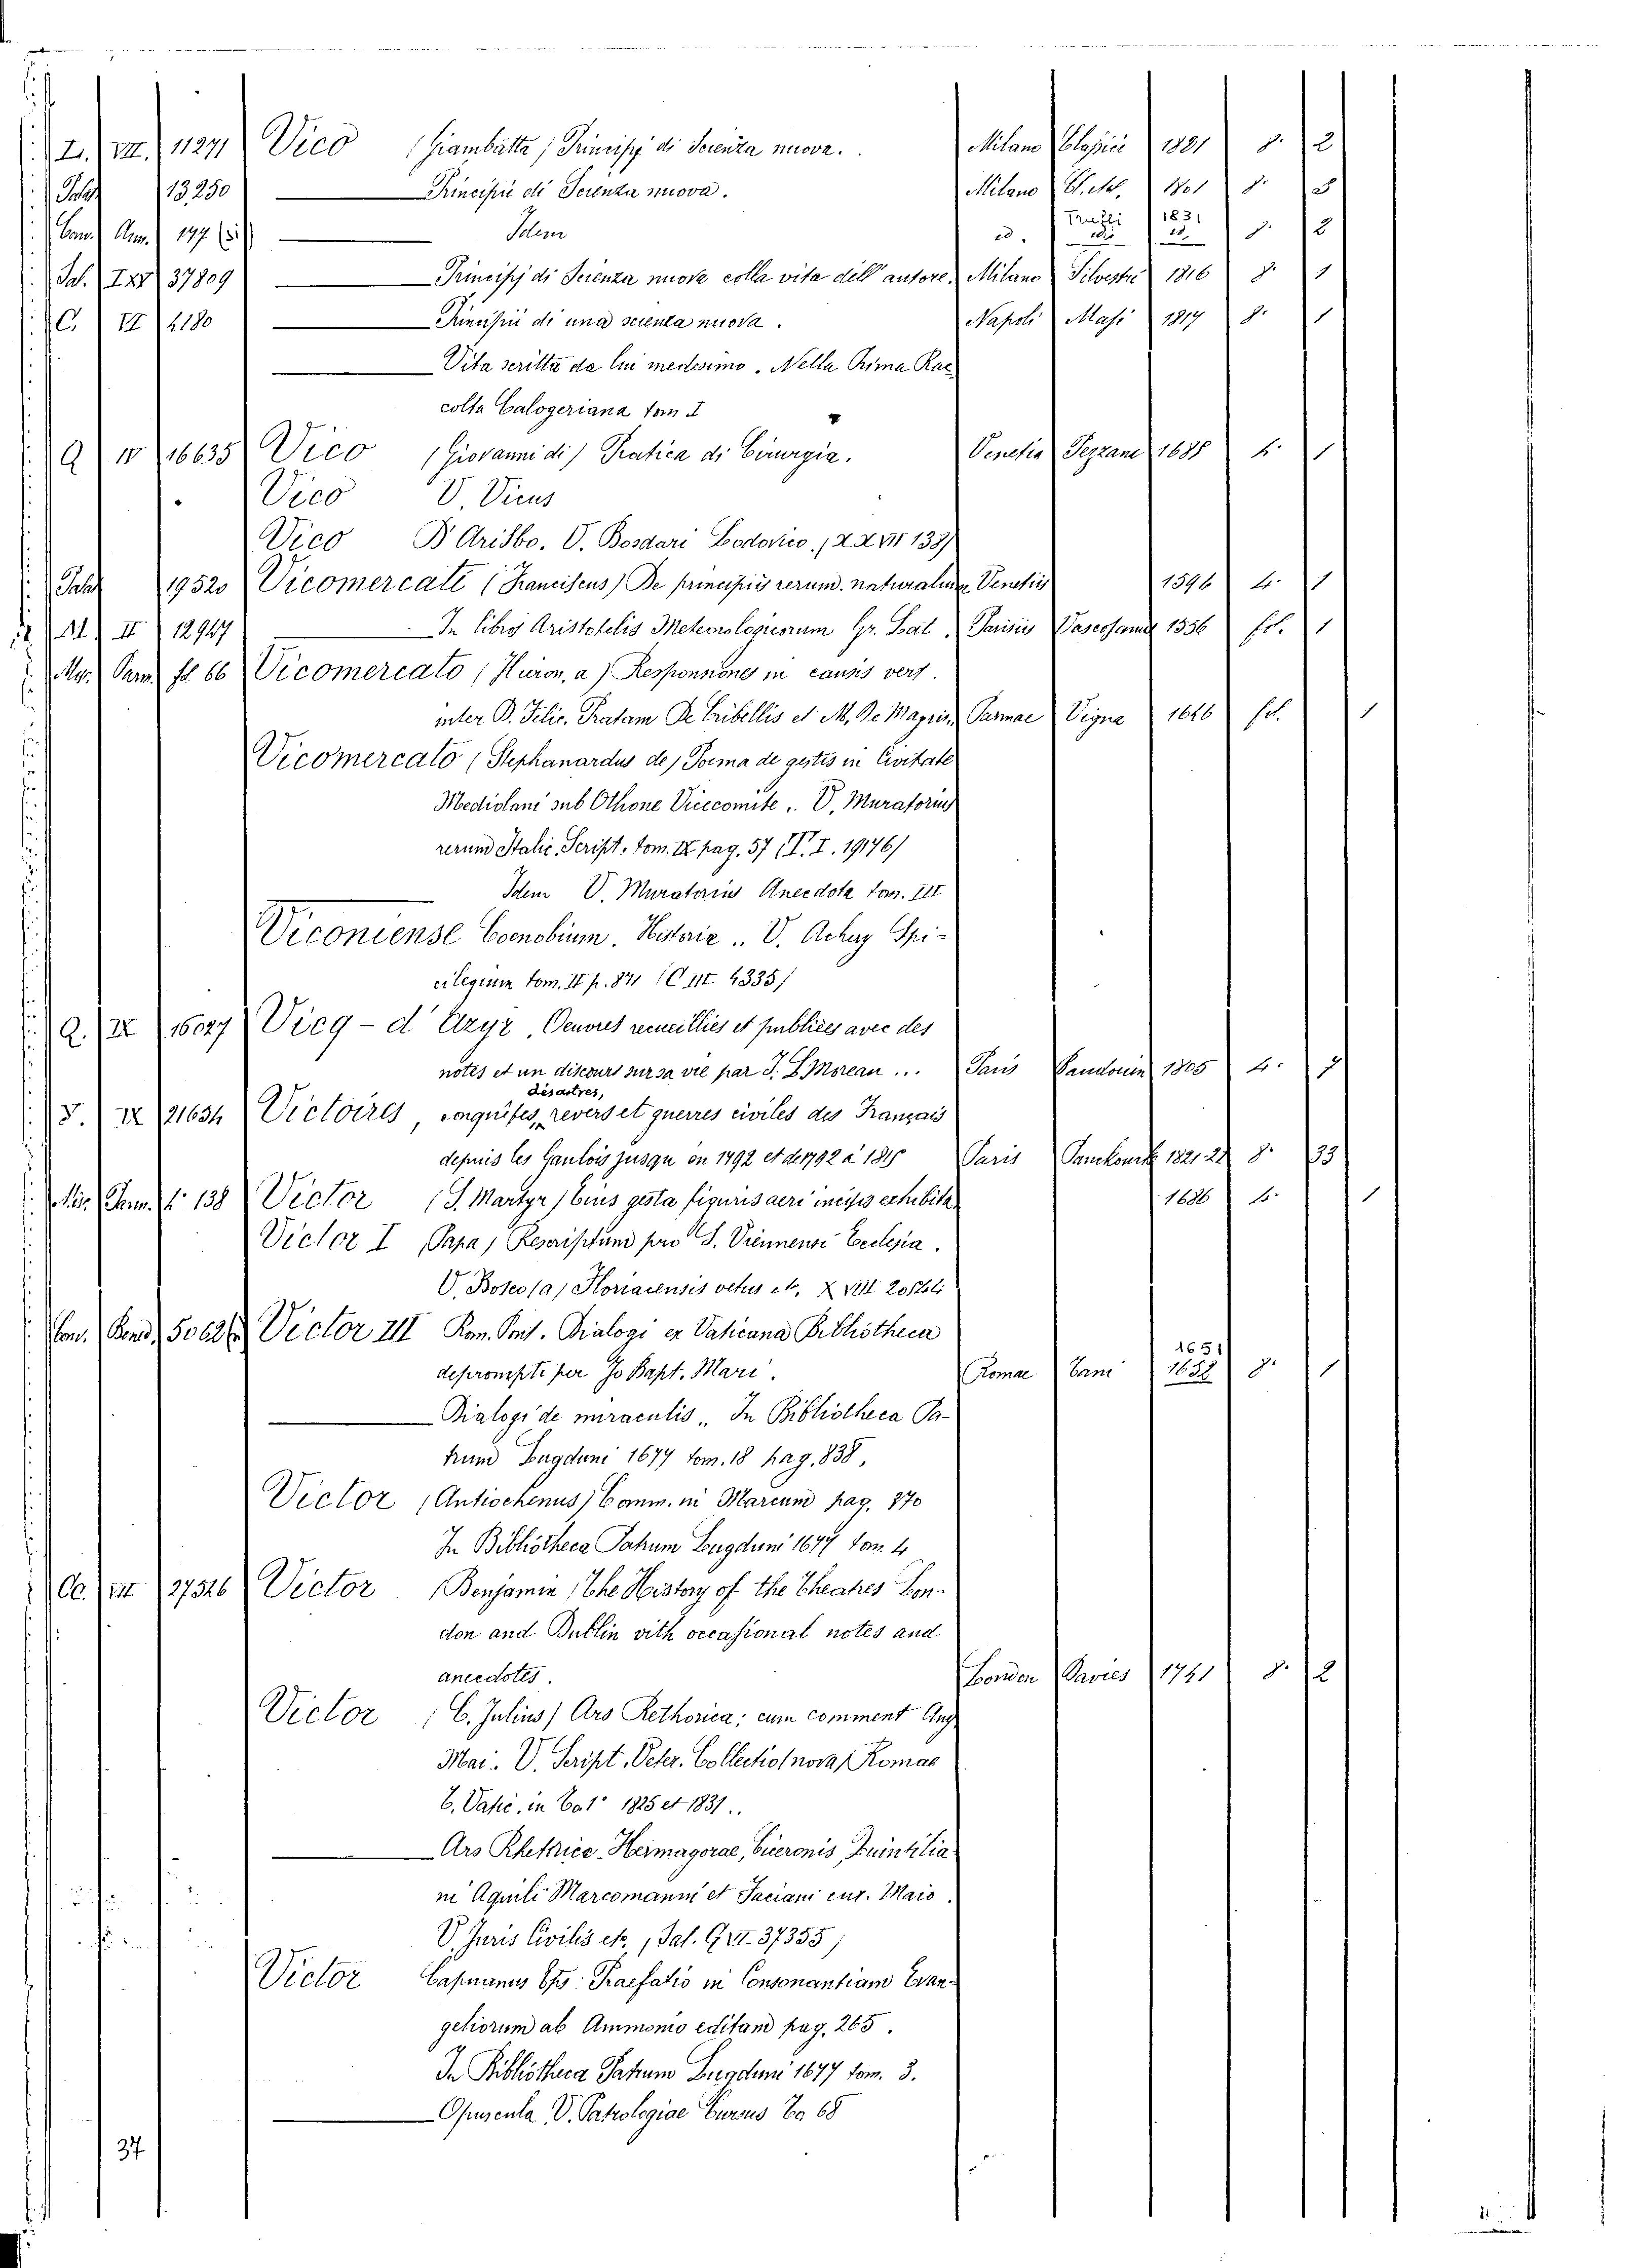 Z. VII. 11271 Vico (Giambatta) Principj di Scienza nuova. Milano Classici 1821 8. 2
Palat 13,250 Principii di Scienza nuova. Milano 1801 8. 3
Con. Ann. 147 Idem id. Truffi 1831 8. 2
Sal. I 37809 Principj di Scienza nuova colla vita dell' autore. Milano Silvestri 1816 8. 1
C. VI 4180 Principii di una scienza nuova. Napoli Masi 1817 8. 1
Vita scritta da lui medesimo. Nella Prima Rac
colta Calogeriana tom I
Q IV 16635 Vico (Giovanni di) Pratica di Cirurgia. Venetia Pezzana 1685 4. 1
Vico V. Vicus
Vico D'Arisbo. V. Bosdari Lodovico. (XXVII 138)
Palat 19520 Vicomercati (Franciscus) De principiis rerum naturalium Venetiis 1596 4. 1
Al. II 12947 In libros Aristotelis Meteorologicorum Gr. Lait. Parisiis Vascosanus 1556 fol. 1
Mis. Parm. fol 66 Vicomercato (Hieron. a) Responsiones in causis vert.
inter D. Felic. Pratam De Cribellis et M. De Maprin Parmae Vigna 1646 fol. 1
Vicomercato (Stephanardus de) Poema de gestis in Civitate
Mediolani sub Othone Vicecomite.. V. Muratorius
rerum Italic. Script. tom. IX pag. 57 (T. I. 19176)
Idem V. Muratorius Anecdota tom. III
Viconiense Coenobium. Historia .. V. Achery Spi-
cilegium tom. II p. 871 (C III 4335)
Q. IX 16027 Vicq-d'Azyr, Oeuvres recueillies et publiées avec des
notes et un discours sur sa vie par J. L. Moreau ... Paris Baudouin 1805 4. 7
désastres,
S. IX 21634 Victoires, conquêtes, revers et guerres civiles des Français
depuis les Gaulois jusqu'en 1792 et de 1792 à 1815 Paris Panckouck 1821-22 8. 33
Mis. Parm. f. 138 Victor (S. Martyr) Eius gesta figuris aeri incisis exhibita 1686 4. 1
Victor I (Papa) Rescriptum pro S. Viennensi Ecclesia.
V. Bosco (a) Floriacensis vetus etc. X VIII
Con. Bened. Victor III Rom. Pont. Dialogi ex Vaticana Bibliotheca
1651
deprompti per Jo Bapt. Mari. Romae Cani 1652 8. 1
Dialogi de miraculis.. In Bibliotheca Pa-
trum Lugduni 1677 tom. 18 pag. 838.
Victor (Antiochenus) Comm. in Marcum pag. 370
In Bibliotheca Patrum Lugduni 1677 tom. 4
Cc. III 27526 Victor (Benjamin) The History of the Theatres Lon-
don and Dublin vith occasional notes and
anecdotes. London Davies 1761 8. 2
Victor (C. Julius) Ars Rethorica; cum comment Ang
Mai. V. Script. Veter. Collectio nova, Romae
C. Vatic. in Co. 1° 1825 et 1831..
Ars Rhetrica Hermagorae, Ciceronis, Quintilia
ni Aquili Marcomanni et Taciani cur. Maio.
V. Juris Civilis etc. (Sal. G VI 37355)
Victor Capuanus Eps Praefatio in Consonantiam Evan-
geliorum ab Ammonio editam pag. 265.
In Bibliotheca Patrum Lugduni 1677 tom. 3.
Opuscula, V. Patrologiae Cursus To 68
37